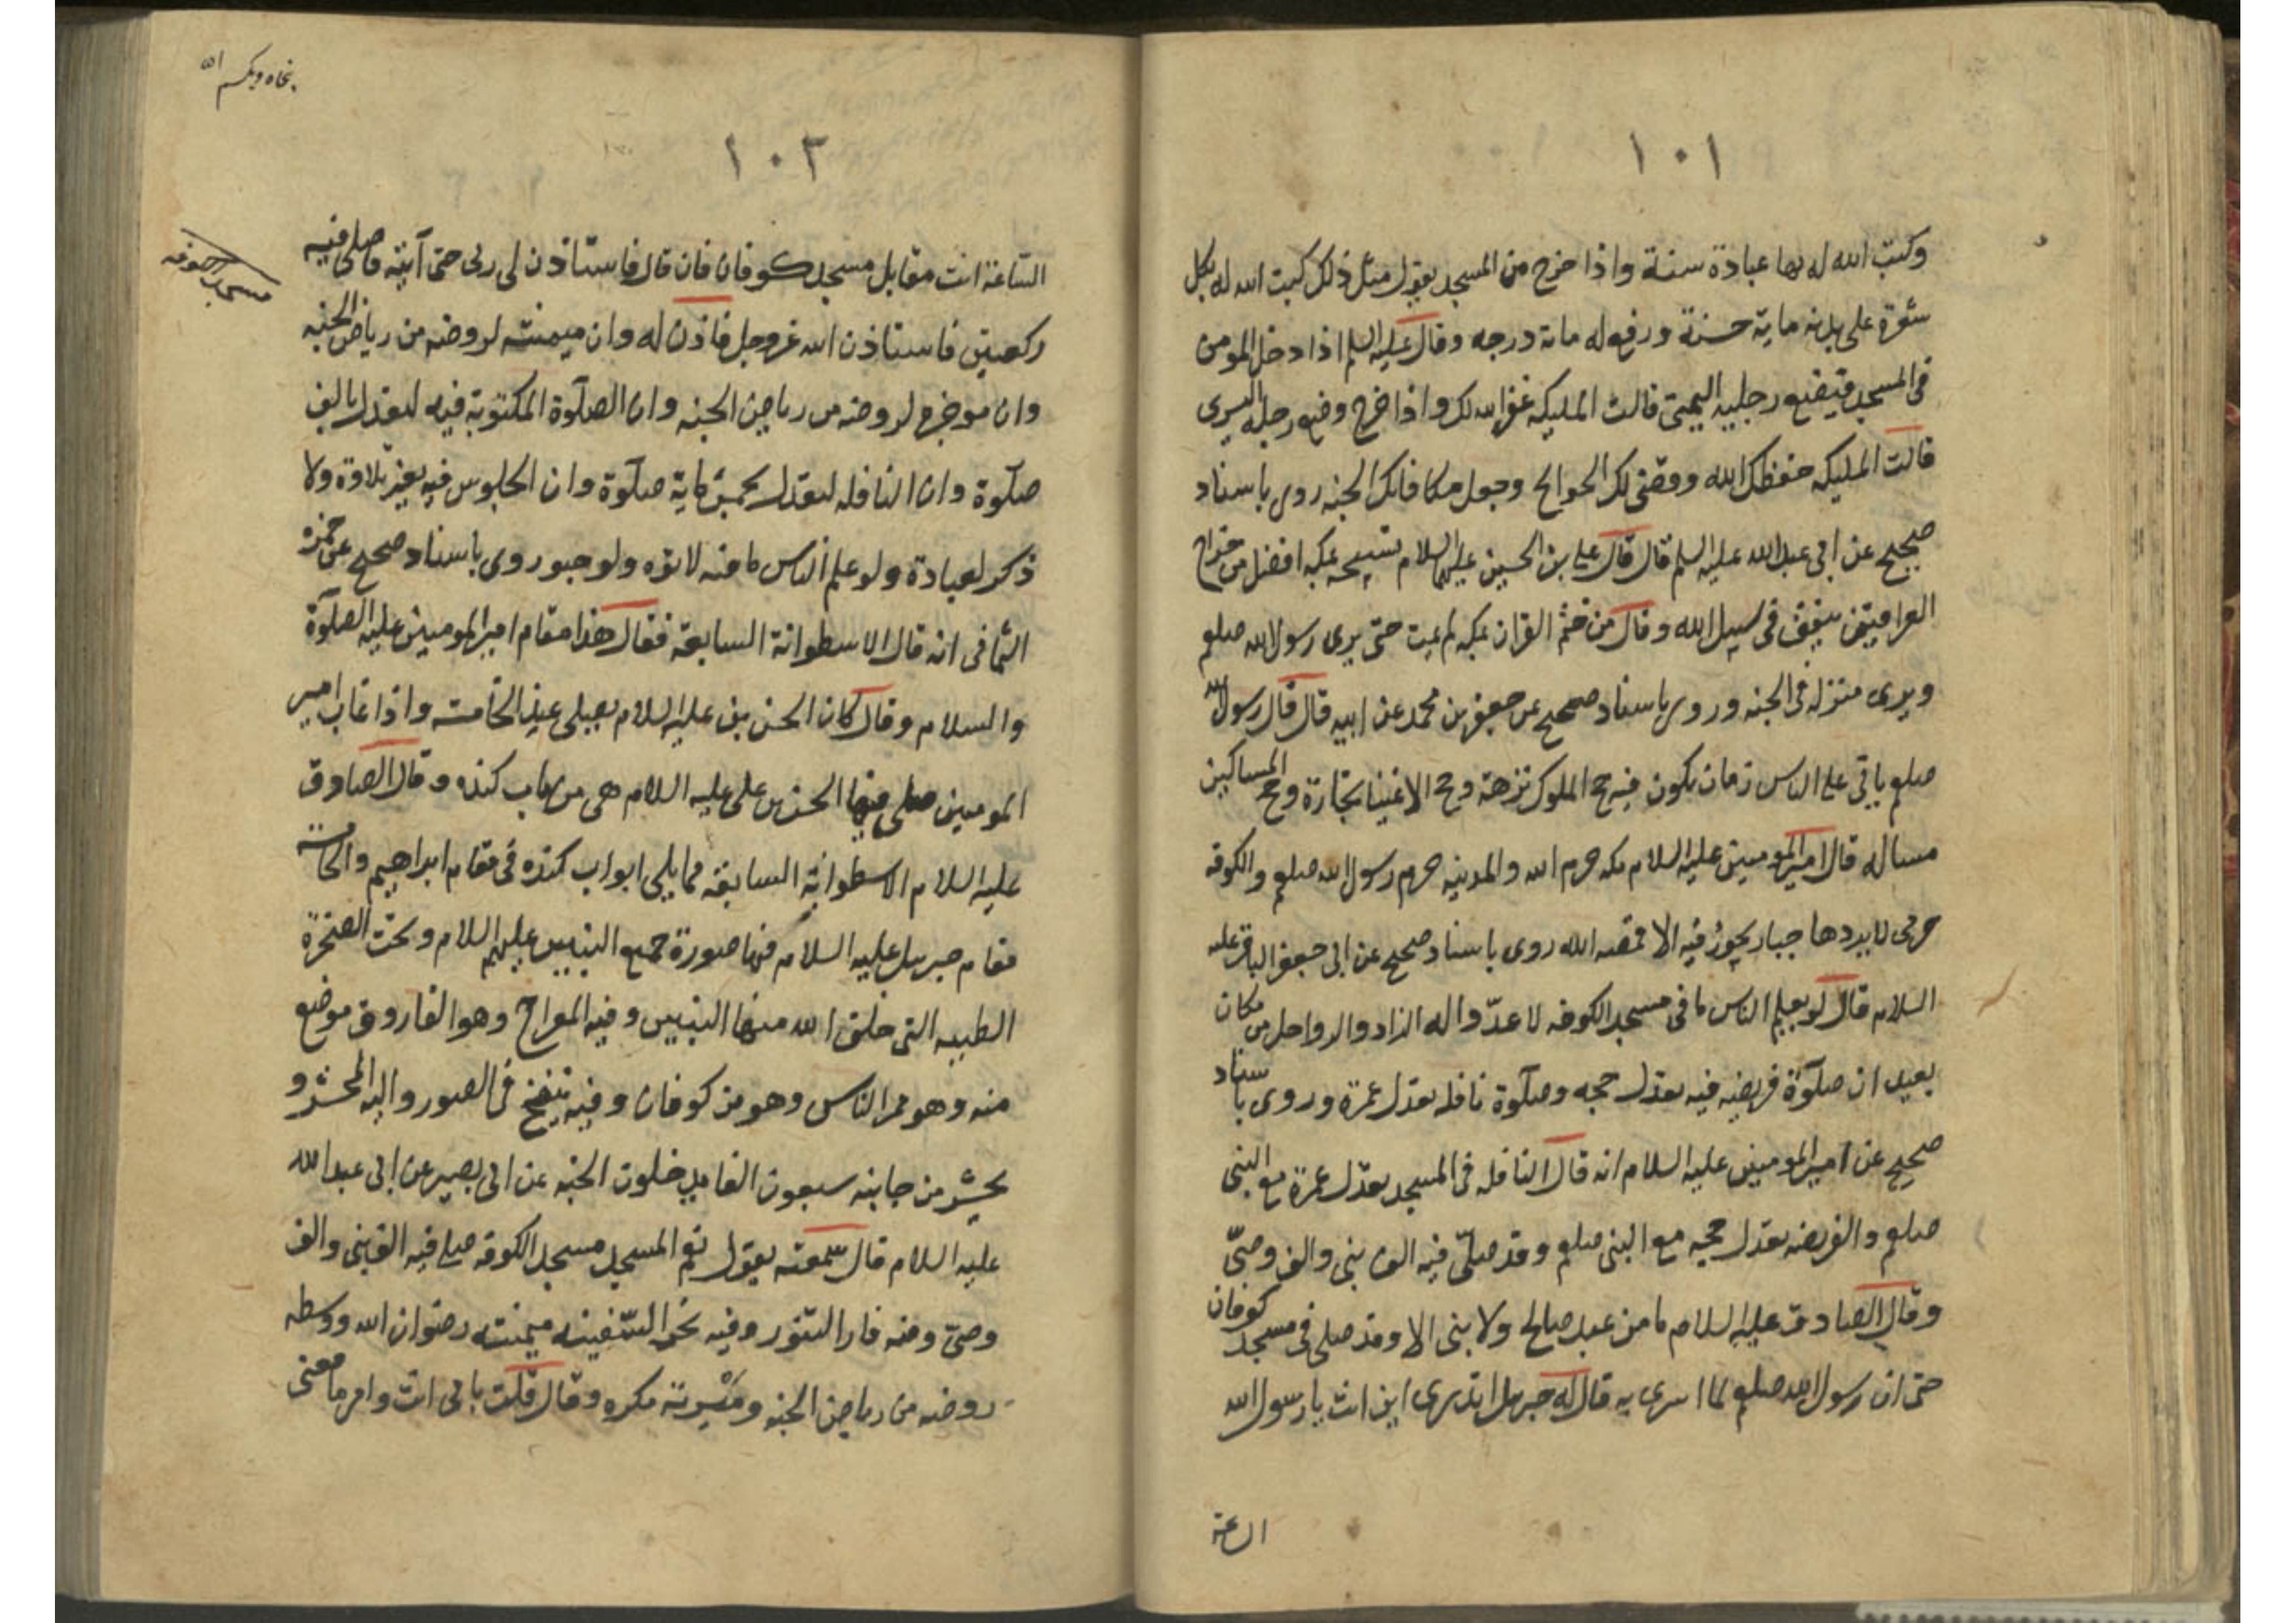 ١٠١
وكتب الله له بها عبادة سنة واذا خرج من المسجد يقول مثل ذلك كتب الله له بكل
شعرة على بدنه ماية حسنة ورفع له ماىة درجه وقال عليه السلم اذا دخل المومن
فى المسجد فيضع رجليه اليمنى قالت المليكه غفر الله لك واذا خرج وضع رجله اليسرى
قالت المليكه حفظك الله وقضى لك الحوايج وجعل مكافاتك الجنه روى باسناد
صحيح عن ابى عبد الله عليه السلم قال قال على بن الحسين عليهما السلام تسبيحه بمكه افضل من خراج
العراقين ينفق فى سبيل الله وقال من ختم القران بمكه لم يمت حتى يرى رسول الله صلعم
ويرى منزله فى الجنه وروى باسناد صحيح عن جعفر بن محمد عن ابيه قال قال رسول الله
صلعم ياتى على الناس زمان يكون فيه حج الملوك نزهة وحج الاغنيا تجارة وحج المساكين
مساله قال امير المومنين عليه السلام مكه حرم الله والمدينه حرم رسول الله صلعم والكوفه
حرمى لا يردها جبار يجوز فيه الا قصمه الله روى باسناد صحيح عن ابى جعفر الباقر عليه
السلام قال لو يعلم الناس ما فى مسجد الكوفه لاعدّوا له الزاد والرواحل من مكان
بعيد ان صلوة فريضه فيه تعدل حجه وصلوة نافله تعدل عمرة وروى باسناد
صحيح عن امير المومنين عليه السلام انه قال النافله فى المسجد تعدل عمرة مع النبى
صلعم والفريضه تعدل حجه مع النبى صلعم وقد صلّى فيه الف نبى والف وصىّ
وقال الصادق عليه السلام ما من عبد صالح ولا نبى الا وقد صلى فى مسجد كوفان
حتى ان رسول الله صلعم لما اسرى به قال له جبريل اتدرى اين انت يا رسول الله
الساعة
١٠٢
مسجد الكوفه
الساعة انت مقابل مسجد كوفان فان قال فاستاذن لى ربى حتى آتيه فاصلى فيه
ركعتين فاستاذن الله عز وجل فاذن له وان ميمنته لروضه من رياض الجنه
وان موخره لروضه من رياض الجنه وان الصلوة المكتوبة فيه لتعدل بالف
صلوة وان النافله لتعدل بخمسماية صلوة وان الجلوس فيه بغير تلاوة ولا
ذكر لعبادة ولو علم الناس ما فيه لاتوه ولو حبو روى باسناد صحيح عن حمزه
الثمافى انه قال الاسطوانة السابعة فقال هذا مقام امير المومنين عليه الصلوة
والسلام وقال كان الحسن بن على عليه السلام يصلى عند الخامسه واذا غاب امير
المومنين صلى فيها الحسن بن على عليه السلام هى من باب كنده وقال الصادق
عليه السلام الاسطوانة السابعة مما يلى ابواب كنده فى مقام ابراهيم والخامسة
مقام جبريل عليه السلام فيها صورة جميع النبيين عليهم السلام وتحت الصخرة
الطيبه التى خلق الله منها النبيين وفيه المعراج وهو الفاروق موضع
منه وهو ممر الناس وهو من كوفان وفيه ينفخ فى الصور واليه المحشر و
يحشر من جانبه سبعون الفا يدخلون الجنه عن ابى بصير عن ابى عبد الله
عليه السلام قال سمعته يقول نعم المسجد مسجد الكوفه صلى فيه الف نبى والف
وصىّ ومنه فار التنور وفيه نجر السفينه ميمنته رضوان الله ووسطه
روضه من رياض الجنه ومَيْسرته مكره وقال قلت بابى انت وامى ما معنى